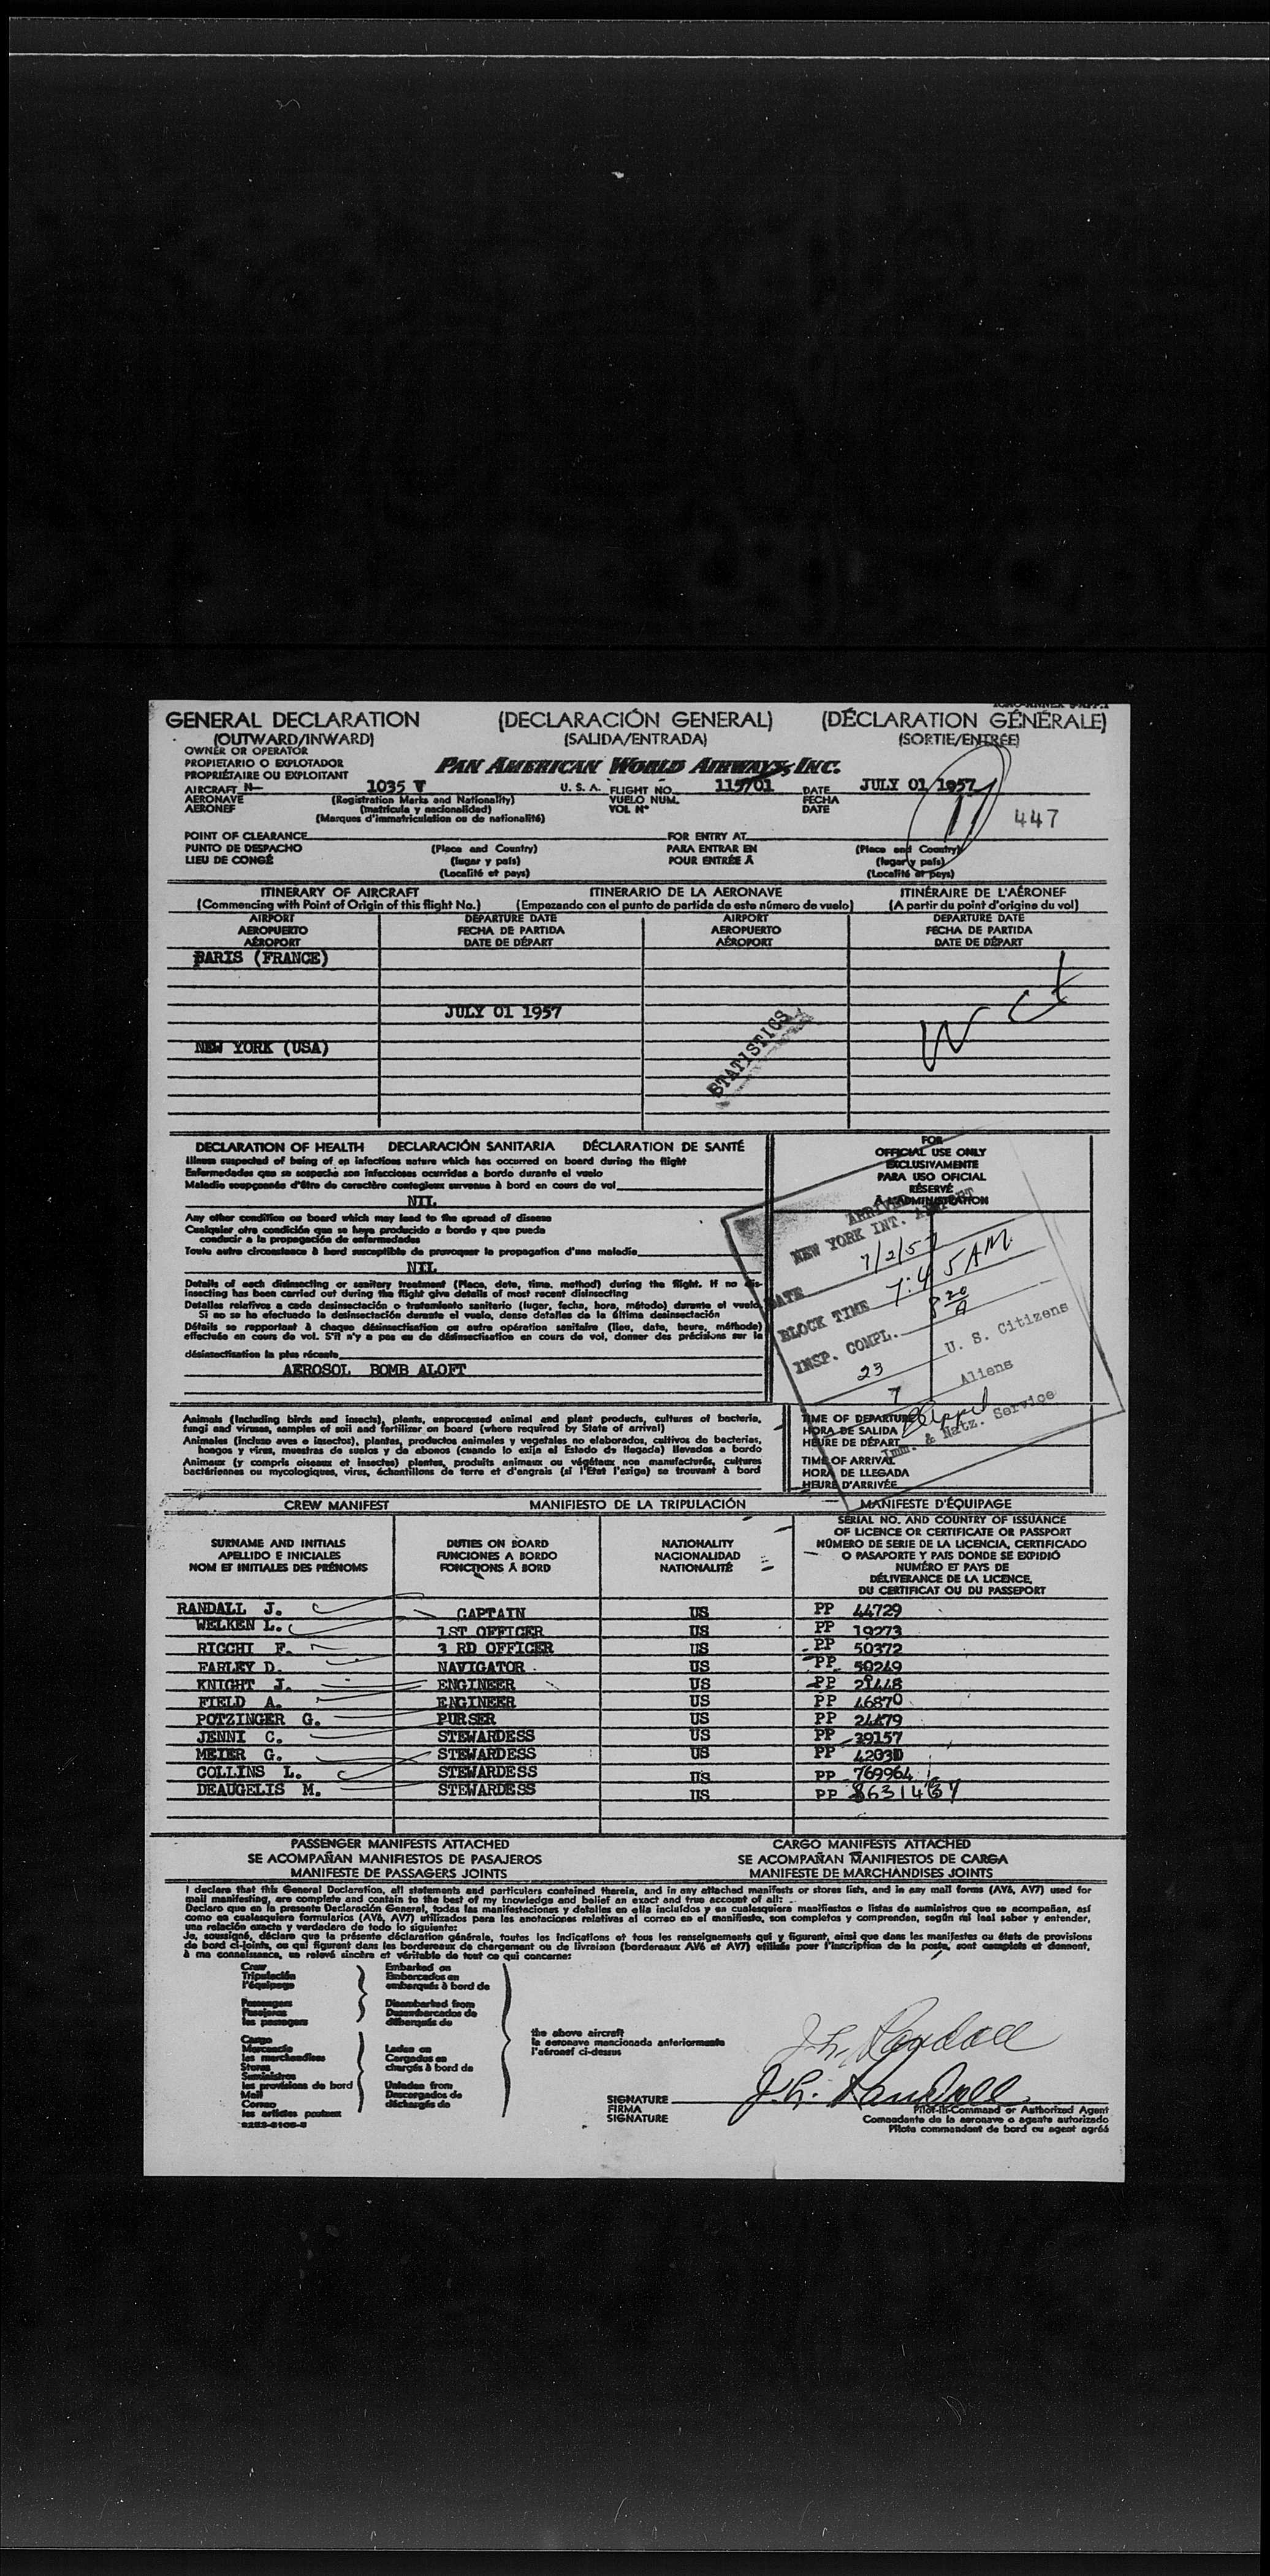 ICAO-ANNEX 9-APP.1
GENERAL DECLARATION (DECLARACIÓN GENERAL) (DÉCLARATION GÉNÉRALE)
(OUTWARD/INWARD) (SALIDA/ENTRADA) (SORTIE/ENTRÉE)
OWNER OR OPERATOR
PROPIETARIO O EXPLOTADOR
PROPRIÉTAIRE OU EXPLOITANT
PAN AMERICAN WORLD AIRWAYS, INC.
AIRCRAFT N- 1035 V U. S. A. FLIGHT NO. 115/01 DATE JULY 01 1957
AERONAVE (Registration Marks and Nationality) VUELO NUM. FECHA
AERONEF (matrícula y nacionalidad) VOL Nº DATE
(Marques d'immatriculation ou de nationalité)
11 447
POINT OF CLEARANCE FOR ENTRY AT
PUNTO DE DESPACHO (Place and Country) PARA ENTRAR EN (Place and Country)
LIEU DE CONGÉ (lugar y país) POUR ENTRÉE À (lugar y país)
(Localité et pays) (Localité et pays)
ITINERARY OF AIRCRAFT ITINERARIO DE LA AERONAVE ITINÉRAIRE DE L'AÉRONEF
(Commencing with Point of Origin of this flight No.) (Empezando con el punto de partida de este número de vuelo) (A partir du point d'origine du vol)
AIRPORT DEPARTURE DATE AIRPORT DEPARTURE DATE
AEROPUERTO FECHA DE PARTIDA AEROPUERTO FECHA DE PARTIDA
AÉROPORT DATE DE DÉPART AÉROPORT DATE DE DÉPART
PARIS (FRANCE)
JULY 01 1957
NEW YORK (USA)
STATISTICS
DECLARATION OF HEALTH DECLARACIÓN SANITARIA DÉCLARATION DE SANTÉ
Illness suspected of being of an infectious nature which has occurred on board during the flight
Enfermedades que se sospecha son infecciosas ocurridas a bordo durante el vuelo
Maladie soupçonnée d'être de caractère contagieux survenue à bord en cours de vol
NIL
Any other condition on board which may lead to the spread of disease
Cualquier otra condición que se haya producido a bordo y que pueda
conducir a la propagación de enfermedades
Toute autre circonstance à bord susceptible de provoquer la propagation d'une maladie
NIL
Details of each disinsecting or sanitary treatment (Place, date, time, method) during the flight. If no dis-
insecting has been carried out during the flight give details of most recent disinsecting
Detalles relativos a cada desinsectación o tratamiento sanitario (lugar, fecha, hora, método) durante el vuelo.
Si no se ha efectuado la desinsectación durante el vuelo, dense detalles de la última desinsectación
Détails se rapportant à chaque désinsectisation ou autre opération sanitaire (lieu, date, heure, méthode)
effectuée en cours de vol. S'il n'y a pas eu de désinsectisation en cours de vol, donner des précisions sur la
désinsectisation la plus récente
AEROSOL BOMB ALOFT
FOR
OFFICIAL USE ONLY
EXCLUSIVAMENTE
PARA USO OFICIAL
RÉSERVÉ
À L'ADMINISTRATION
ARRIVED
NEW YORK INT. AIRPORT
DATE 7/2/57
BLOCK TIME 7:45 AM
INSP. COMPL. 8 20 A
23 U. S. Citizens
7 Aliens
Imm. & Natz. Service
Animals (Including birds and insects), plants, unprocessed animal and plant products, cultures of bacteria,
fungi and viruses, samples of soil and fertilizer on board (where required by State of arrival)
Animales (incluso aves e insectos), plantas, productos animales y vegetales no elaborados, cultivos de bacterias,
hongos y virus, muestras de suelos y de abonos (cuando lo exija el Estado de llegada) llevados a bordo
Animaux (y compris oiseaux et insectes) plantes, produits animaux ou végétaux non manufacturés, cultures
bactériennes ou mycologiques, virus, échantillons de terre et d'engrais (si l'Etat l'exige) se trouvant à bord
TIME OF DEPARTURE
HORA DE SALIDA
HEURE DE DÉPART
TIME OF ARRIVAL
HORA DE LLEGADA
HEURE D'ARRIVÉE
CREW MANIFEST MANIFIESTO DE LA TRIPULACIÓN MANIFESTE D'ÉQUIPAGE
SURNAME AND INITIALS
APELLIDO E INICIALES
NOM ET INITIALES DES PRÉNOMS
DUTIES ON BOARD
FUNCIONES A BORDO
FONCTIONS À BORD
NATIONALITY
NACIONALIDAD
NATIONALITÉ
SERIAL NO. AND COUNTRY OF ISSUANCE
OF LICENCE OR CERTIFICATE OR PASSPORT
NÚMERO DE SERIE DE LA LICENCIA, CERTIFICADO
O PASAPORTE Y PAIS DONDE SE EXPIDIÓ
NUMÉRO ET PAYS DE
DÉLIVERANCE DE LA LICENCE,
DU CERTIFICAT OU DU PASSEPORT
RANDALL J. CAPTAIN US PP 44729
WELKEN L. 1ST OFFICER US PP 19273
RICCHI F. 3 RD OFFICER US PP 50372
FARLEY D. NAVIGATOR US PP 50249
KNIGHT J. ENGINEER US PP 21448
FIELD A. ENGINEER US PP 46870
POTZINGER G. PURSER US PP 24479
JENNI C. STEWARDESS US PP 39157
MEIER G. STEWARDESS US PP 42030
COLLINS L. STEWARDESS US PP 769964
DEAUGELIS M. STEWARDESS US PP
PASSENGER MANIFESTS ATTACHED CARGO MANIFESTS ATTACHED
SE ACOMPAÑAN MANIFIESTOS DE PASAJEROS SE ACOMPAÑAN MANIFIESTOS DE CARGA
MANIFESTE DE PASSAGERS JOINTS MANIFESTE DE MARCHANDISES JOINTS
I declare that this General Declaration, all statements and particulars contained therein, and in any attached manifests or stores lists, and in any mail forms (AV6, AV7) used for
mail manifesting, are complete and contain to the best of my knowledge and belief an exact and true account of all:
Declaro que en la presente Declaración General, todas las manifestaciones y detalles en ella incluídos y en cualesquiera manifiestos o listas de suministros que se acompañan, así
como en cualesquiera formularios (AV6, AV7) utilizados para las anotaciones relativas al correo en el manifiesto, son completos y comprenden, según mi leal saber y entender,
una relación exacta y verdadera de todo lo siguiente:
Je, soussigné, déclare que la présente déclaration générale, toutes les indications et tous les renseignements qui y figurent, ainsi que dans les manifestes ou états de provisions
de bord ci-joints, ou qui figurent dans les bordereaux de chargement ou de livraison (bordereaux AV6 et AV7) utilisés pour l'inscription de la poste, sont complets et donnent,
à ma connaissance, un relevé sincère et véritable de tout ce qui concerne:
Crew
Tripulación
l'équipage
Passengers
Pasajeros
les passagers
Cargo
Mercancía
les marchandises
Stores
Suministros
les provisions de bord
Mail
Correo
les articles postaux
Embarked on
Embarcados en
embarqués à bord de
Disembarked from
Desembarcados de
débarqués de
Laden on
Cargados en
chargés à bord de
Unladen from
Descargados de
déchargés de
the above aircraft
la aeronave mencionada anteriormente
l'aéronef ci-dessus
J.H. Randall
J.H. Randall
SIGNATURE
FIRMA
SIGNATURE
Pilot-in-Command or Authorized Agent
Comandante de la aeronave o agente autorizado
Pilote commandant de bord ou agent agréé